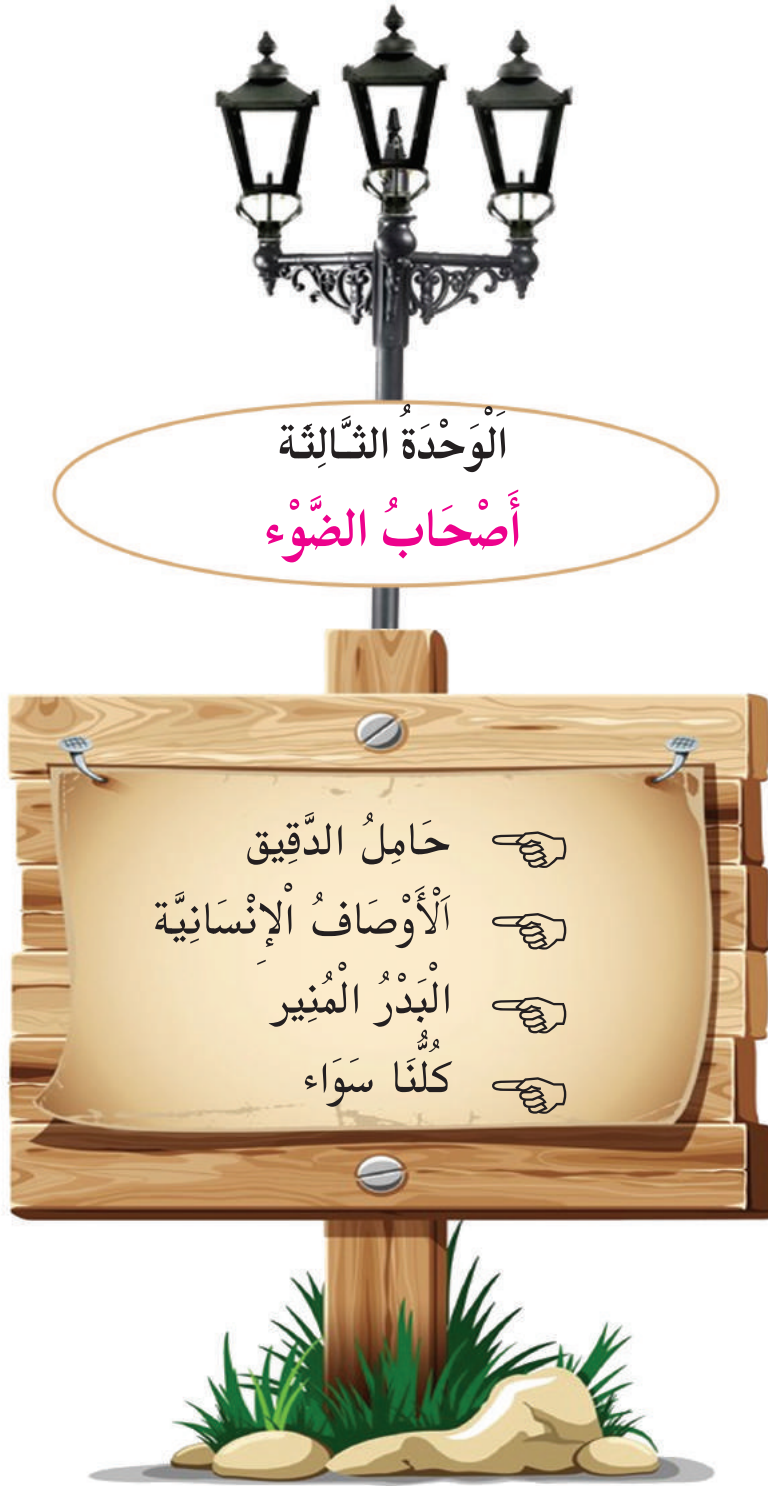 اَلْوَحْدَةُ الثَّالِثَة
أَصْحَابُ الضَّوْء
حَامِلُ الدَّقِيق
اَلْأَوْصَافُ الْإِنْسَانِيَّة
الْبَدْرُ الْمُنِير
كُلُّنَا سَوَاء